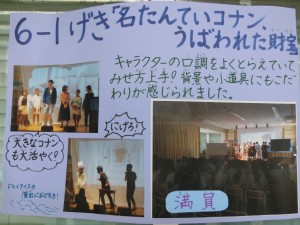 6-1げき「名たんていコナン、
うばわれた財宝
キャラクターの口調をよくとらえていて、
みせ方上手!背景や小道具にもこだ
わりが感じられました。
にげろ!
大きなコナン
も大活やく?
ドライアイスの
演出におどろき!
満員